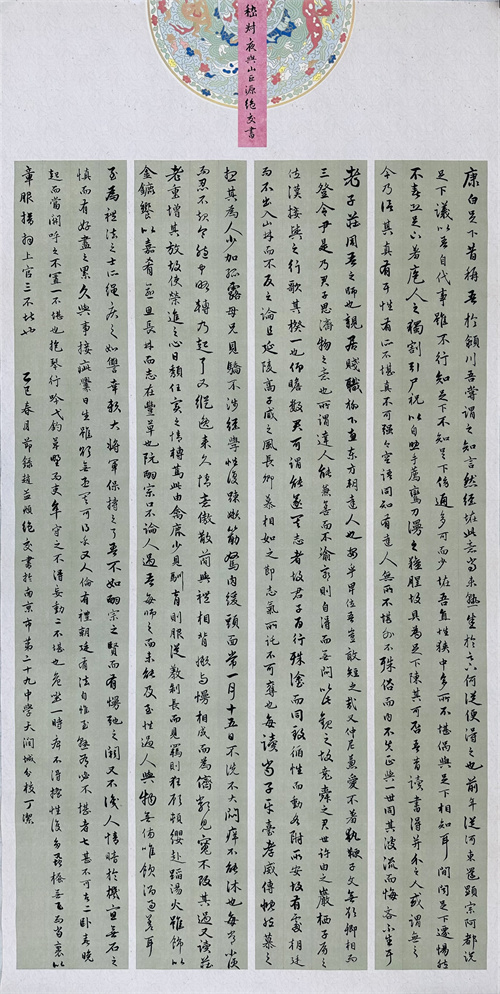 嵇叔夜與山巨源絕交書
康白足下昔稱吾於潁川吾嘗謂之知言然經怪此意尚未熟悉於足下何從便得之也前年從河東還顯宗阿都說
足下議以吾自代事雖不行知足下不知之足下傍通多可而少怪吾直性狹中多所不堪偶與足下相知耳間聞足下遷惕然
不喜恐足下羞庖人之獨割引尸祝以自助手薦鸞刀漫之膻腥故具為足下陳其可否吾昔讀書得并介之人或謂無之
今乃信其真有耳性有所不堪真不可強今空語同知有達人無所不堪外不殊俗而內不失正與一世同其波流而悔吝不生耳
老子莊周吾之師也親居賤職柳下惠東方朔達人也安乎卑位吾豈敢短之哉又仲尼兼愛不羞執鞭子文無欲卿相而
三登令尹是乃君子思濟物之意也所謂達人能兼善而不渝窮則自得而無悶以此觀之故堯舜之君世許由之巖栖子房之
佐漢接輿之行歌其揆一也仰瞻數君可謂能遂其志者故君子百行殊塗而同致循性而動各附所安故有處朝廷
而不出入山林而不反之論且延陵高子臧之風長卿慕相如之節志氣所託不可奪也每讀尚子平臺孝威傳慨然慕之
想其為人少加孤露母兄見驕不涉經學性復疏嬾筋駑肉緩頭面常一月十五日不洗不大悶癢不能沐也每常小便
而忍不起令胞中略轉乃起耳又縱逸來久情意傲散簡與禮相背嬾與慢相成而為儕類見寬不攻其過又讀莊
老重增其放故使榮進之心日頹任實之情轉篤此由禽鹿少見馴育則服從教制長而見羈則狂顧頓纓赴蹈湯火雖飾以
金鑣饗以嘉肴愈思長林而志在豐草也阮嗣宗口不論人過吾每師之而未能及至性過人與物無傷唯飲酒過差耳
至為禮法之士所繩疾之如讎幸賴大將軍保持之耳吾不如嗣宗之賢而有慢弛之闕又不識人情闇於機宜無萬石之
慎而有好盡之累久與事接疵釁日生雖欲無患其可得乎又人倫有禮朝廷有法自惟至熟有必不堪者七甚不可者二臥喜晚
起而當關呼之不置一不堪也抱琴行吟弋釣草野而吏卒守之不得妄動二不堪也危坐一時痺不得搖性復多蝨把搔無已而當裹以
章服揖拜上官三不堪也 乙巳春月節錄趙孟頫絕交書於南京市第二十九中學天潤城分校丁潔